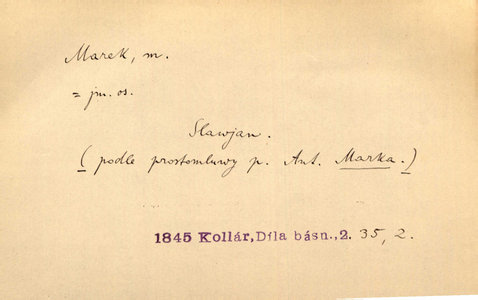 Marek, m.
= jm. os.
Slawjan.
(podle prostomluwy p. Ant. Marka.)
1845 Kollár, Díla básn., 2. 35, 2.